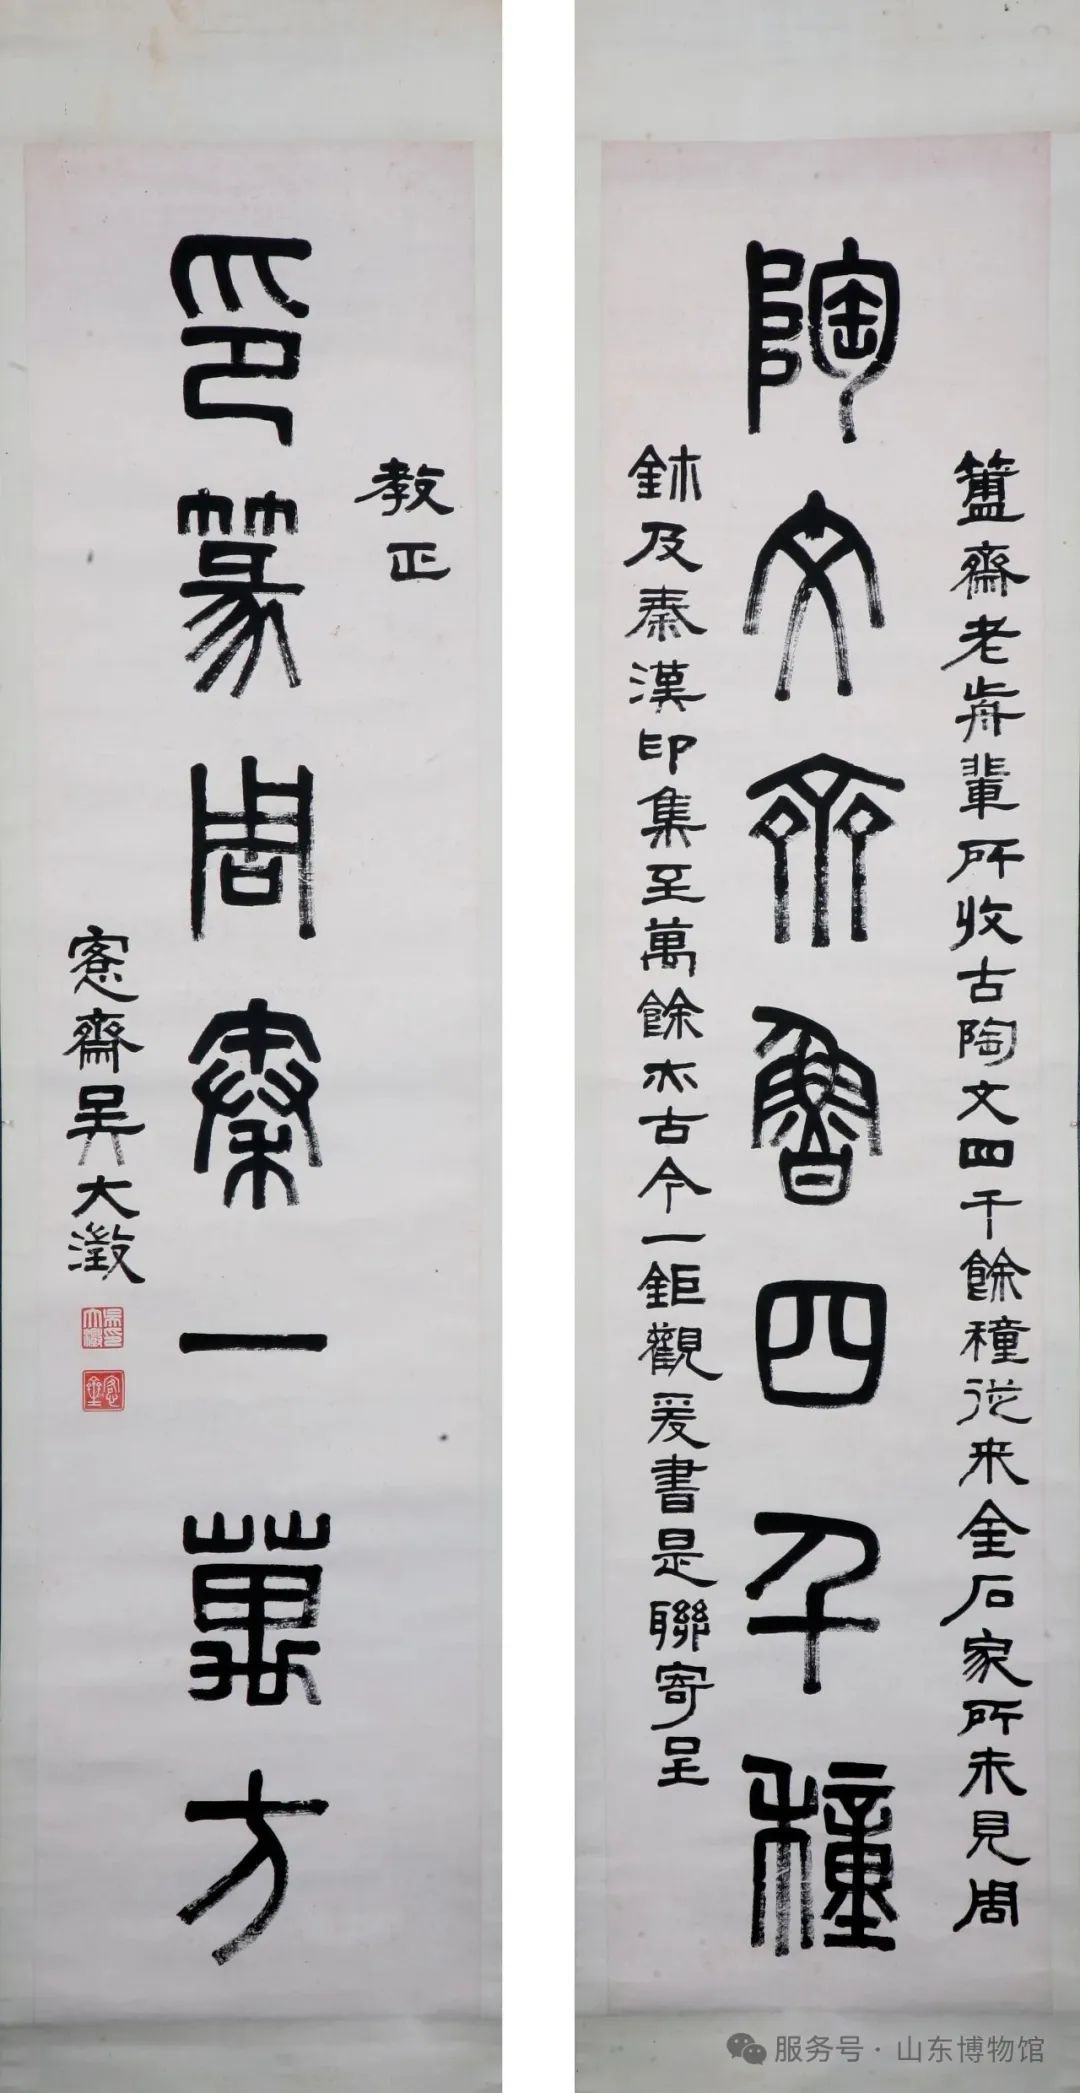 陶文齊魯四千種
簠齋老歬輩所收古陶文四千餘種從来金石家所未見周
鉥及秦漢印集至萬餘亦古今一鉅觀爰書是聯寄呈
教正
印篆周秦一萬方
愙齋吴大澂
服务号·山东博物馆